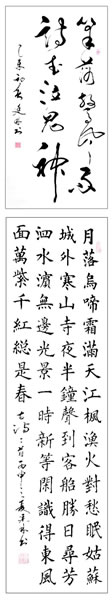 筆落驚風雨
詩成泣鬼神
乙未初春
月落烏啼霜滿天江楓漁火對愁眠姑蘇
城外寒山寺夜半鐘聲到客船勝日尋芳
泗水濱無邊光景一時新等閒識得東風
面萬紫千紅總是春 古詩二首丙申